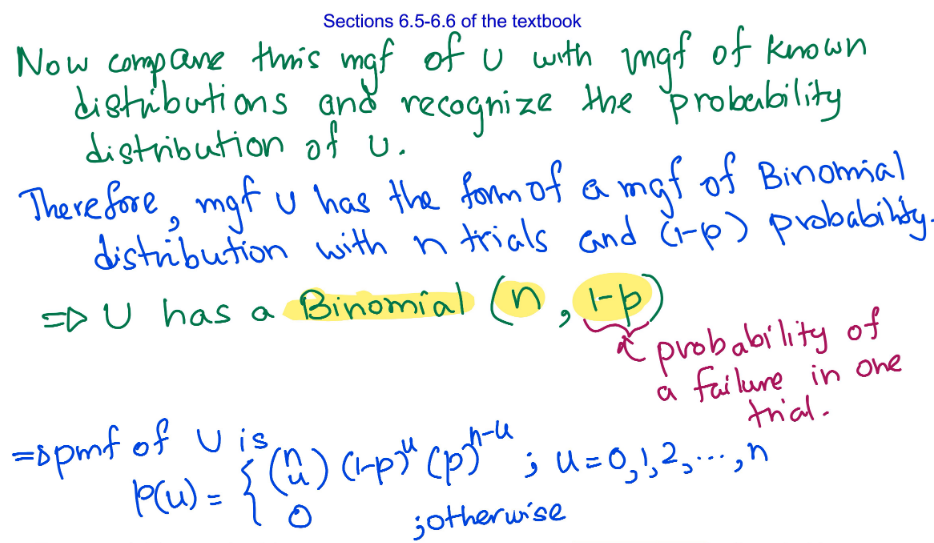 Sections 6.5-6.6 of the textbook
Now compare this mgf of U with mgf of known
distributions and recognize the probability
distribution of U.
Therefore, mgf U has the form of a mgf of Binomial
distribution with n trials and (1-p) probability.
⇒ U has a Binomial (n, 1-p)
probability of
a failure in one
trial.
⇒ pmf of U is
p(u) = { (n u) (1-p)^u (p)^n-u ; u=0,1,2,...,n
0 ; otherwise